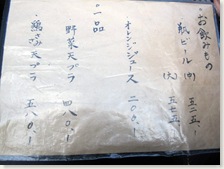 ・お飲みもの
瓶ビール (中) 五二五.-
(大) 五七五.-
オレンジジュース 二〇〇.-
・一品
野菜天プラ 四八〇.-
鶏ささみ天プラ 五八〇.-